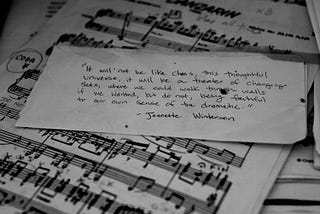 "It will not be like chess, this thoughtful
universe, it will be a theater of changing
sets, where we could walk through walls
if we wanted, but do not, being faithful
to our own sense of the dramatic."
- Jeanette Winterson
Coda